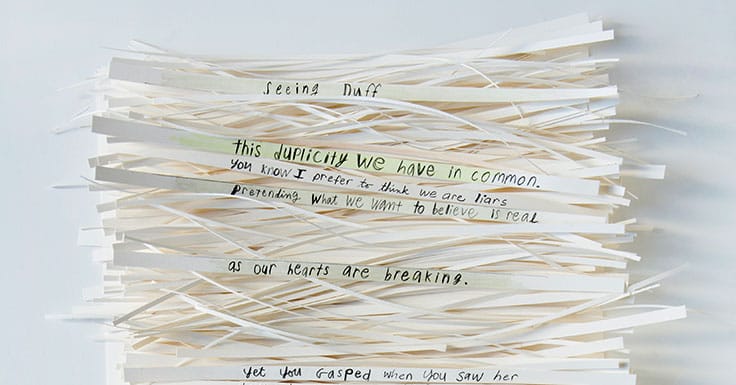 Seeing Duff
this duplicity we have in common.
you know I prefer to think we are liars
pretending what we want to believe is real
as our hearts are breaking.
yet you gasped when you saw her